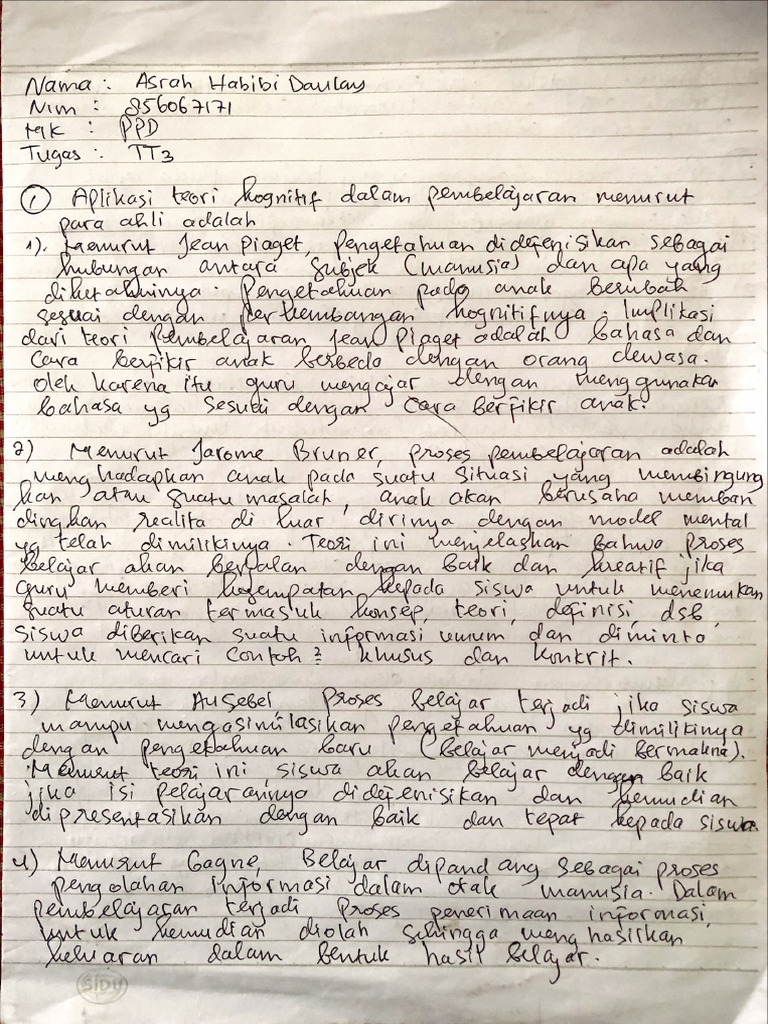 Nama : Asrah Habibi Daulay
Nim : 856067171
MK : PPD
Tugas : TT3
① Aplikasi teori kognitif dalam pembelajaran menurut
para ahli adalah
1). Menurut Jean Piaget, Pengetahuan didefenisikan sebagai
hubungan antara Subjek (manusia) dan apa yang
diketahuinya. Pengetahuan pada anak berubah
sesuai dengan perkembangan kognitifnya. Implikasi
dari teori pembelajaran Jean Piaget adalah bahasa dan
Cara berfikir anak berbeda dengan orang dewasa.
Oleh karena itu guru mengajar dengan menggunakan
bahasa yg sesuai dengan cara berfikir anak.
2) Menurut Jarome Bruner, proses pembelajaran adalah
menghadapkan anak pada suatu situasi yang membingung
kan atau suatu masalah, anak akan berusaha memban
dingkan realita di luar dirinya dengan model mental
yg telah dimilikinya. Teori ini menjelaskan bahwa proses
belajar akan berjalan dengan baik dan kreatif jika
guru memberi kesempatan kepada siswa untuk menemukan
suatu aturan termasuk konsep, teori, definisi, dsb,
siswa diberikan suatu informasi umum dan diminta
untuk mencari contoh2 khusus dan konkrit.
3) Menurut Ausebel, Proses belajar terjadi jika siswa
mampu mengasimilasikan pengetahuan yg dimilikinya
dengan pengetahuan baru (belajar menjadi bermakna).
Menurut teori ini, siswa akan belajar dengan baik
jika isi pelajarannya didefenisikan dan kemudian
dipresentasikan dengan baik dan tepat kepada siswa.
4) Menurut Gagne, Belajar dipandang sebagai proses
pengolahan informasi dalam otak manusia. Dalam
pembelajaran terjadi proses penerimaan informasi,
untuk kemudian diolah sehingga menghasilkan
keluaran dalam bentuk hasil belajar.
SIDU